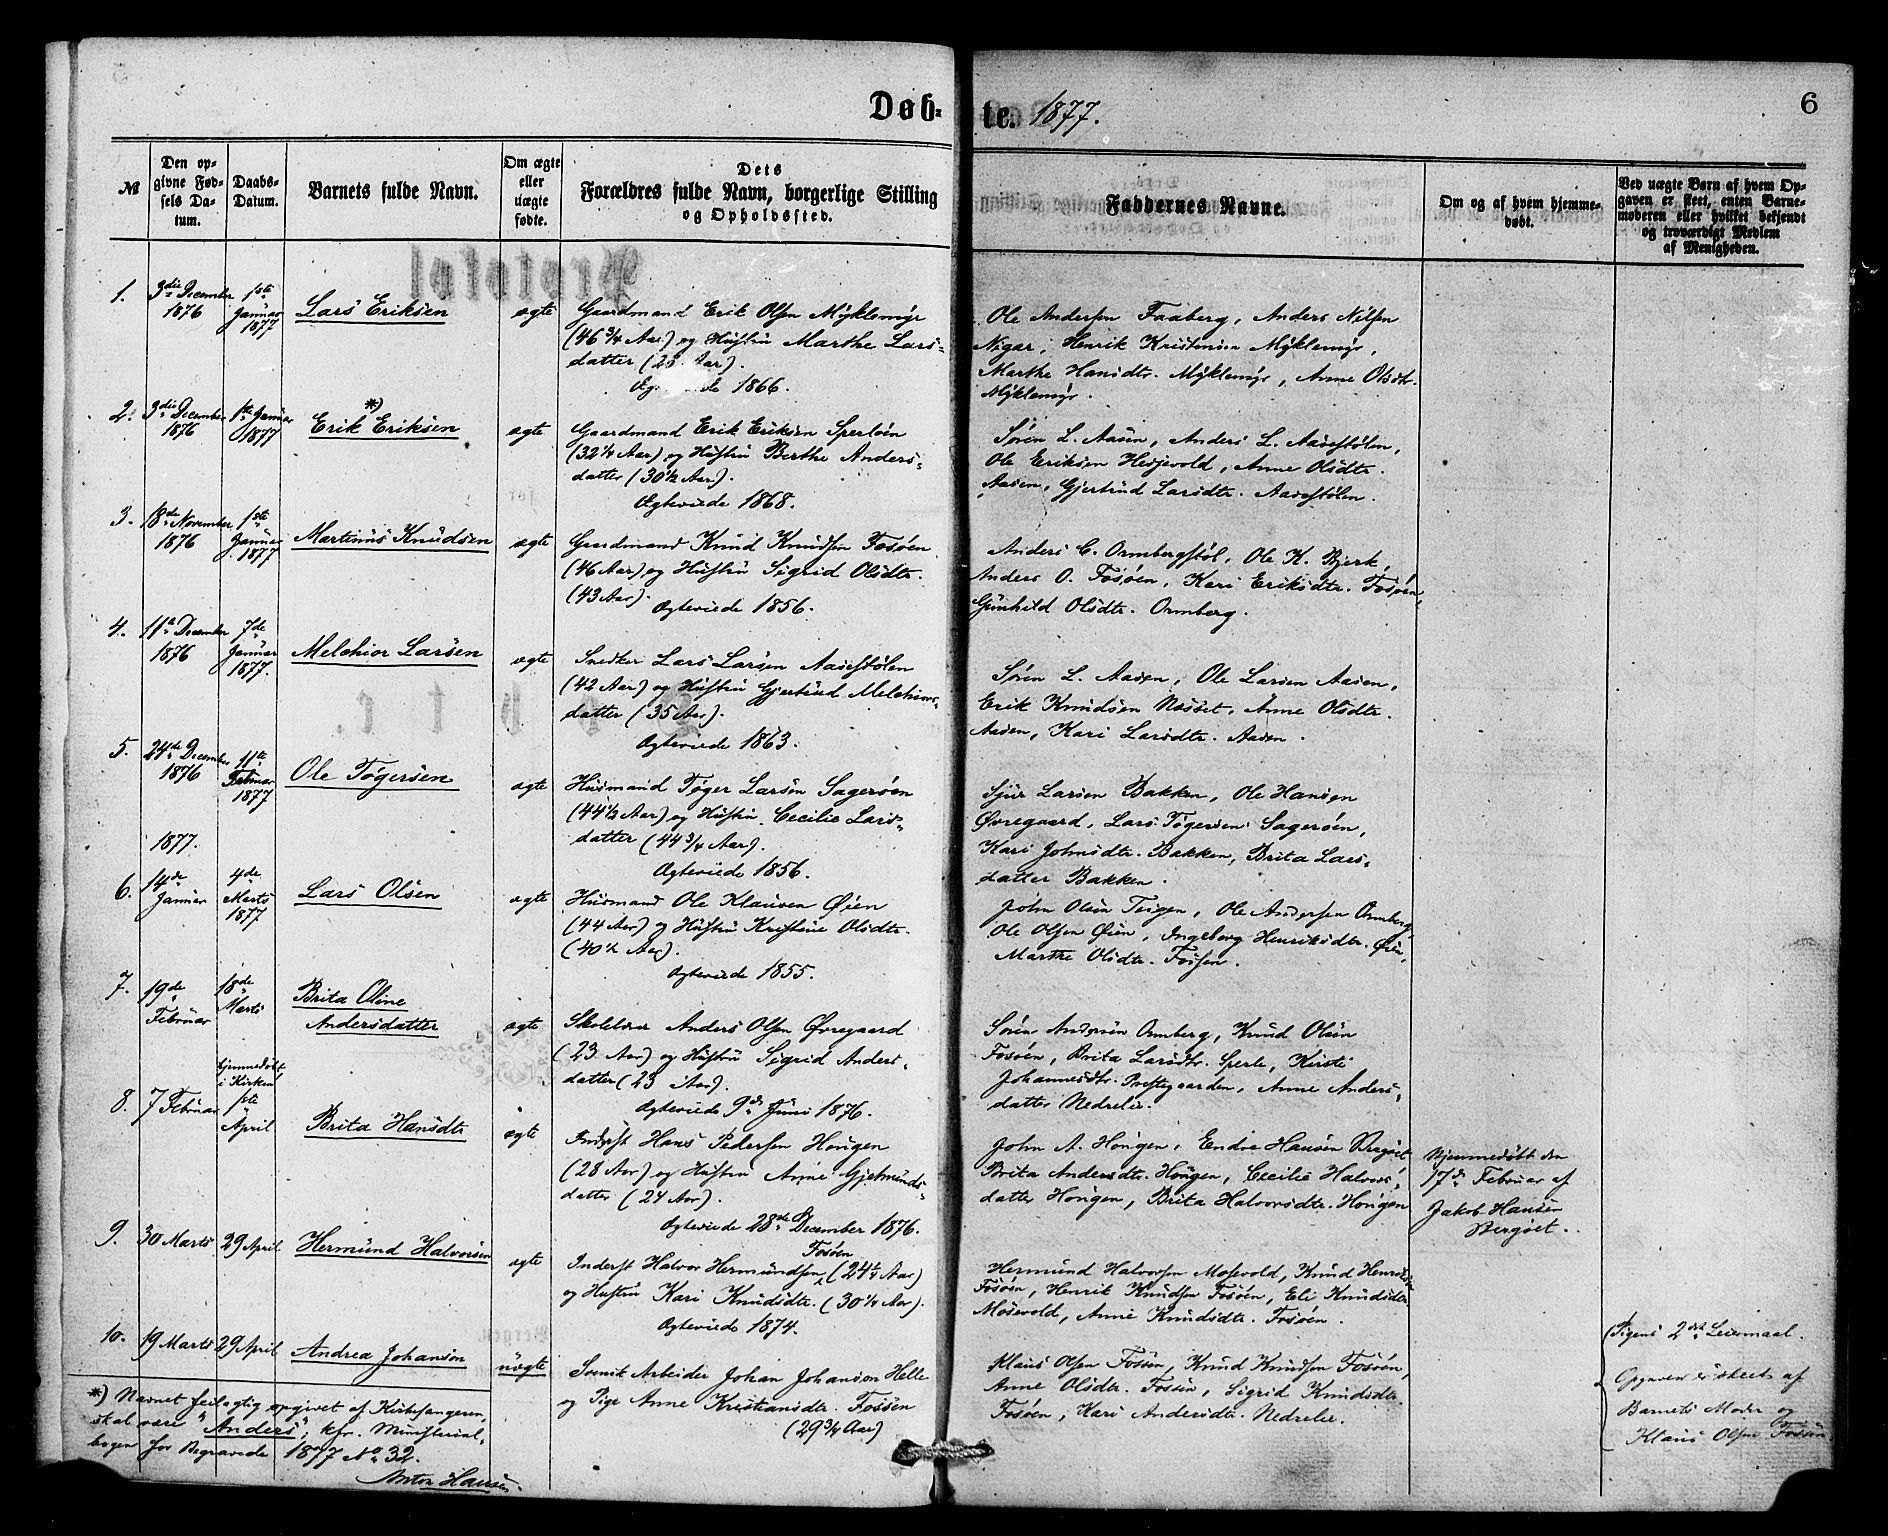 Døb-
te. 1877.
6
№
Den op-
givne Fød-
sels Da-
tum.
Daabs-
Datum.
Barnets fulde Navn.
Om ægte
eller
uægte
fødte.
Dets
Forældres fulde Navn, borgerlige Stilling
og Opholdssted.
Faddernes Navne.
Om og af hvem hjemme-
døbt.
Ved uægte Børn af hvem Op-
gaven er skeet, enten Barne-
moderen eller hvilket bekjendt
og troværdigt Medlem
af Menigheden.
1.
3die December
1876
1ste
Januar
1877
Lars Eriksen
ægte
Gaardmand Erik Olsen Myklemyr
(46 3/4 Aar) og Hustru Marthe Lars-
datter (28 Aar).
1866.
Ole Andersen Faaberg, Anders Nilsen
Nigar, Henrik Kristensen Myklemyr,
Marthe Hansdtr. Myklemyr, Anne Olsdtr.
Myklemyr.
2.
3die December
1876
1ste Januar
1877
*)
Erik Eriksen
ægte
Gaardmand Erik Eriksen Sperleøen
(32 1/4 Aar) og Hustru Berthe Anders-
datter (30 1/2 Aar).
Ægteviede 1868.
Søren L. Aasen, Anders L. Aasestølen,
Ole Eriksen Hesjevold, Anne Olsdtr.
Aasen, Gjertrud Larsdtr. Aasestølen.
3.
18de November
1876
1ste
Januar
1877
Martinus Knudsen
ægte
Gaardmand Knud Knudsen Fosøen
(46 Aar) og Hustru Sigrid Olsdtr.
(43 Aar).
Ægteviede 1856.
Anders C. Ormbergstøl, Ole K. Bjerk,
Anders O. Fosøen, Kari Eriksdtr. Fosøen,
Gunhild Olsdtr. Ormberg.
4.
11te December
1876
7de
Januar
1877.
Melchior Larsen
ægte
Snedker Lars Larsen Aasestølen
(42 Aar) og Hustru Gjertrud Melchiors-
datter (35 Aar).
Ægteviede 1863.
Søren L. Aasen, Ole Larsen Aasen,
Erik Knudsen Næsset, Anne Olsdtr.
Aasen, Kari Larsdtr. Aasen.
5.
24de December
1876
11te
Februar
1877
Ole Tøgersen
ægte
Husmand Tøger Larsen Sagerøen
(44 1/2 Aar) og Hustru Cecilie Lars-
datter (44 3/4 Aar).
Ægteviede 1856.
Sjur Larsen Bakken, Ole Hansen
Øvregaard, Lars Tøgersen Sagerøen,
Kari Johnsdtr. Bakken, Brita Lars-
datter Bakken.
1877.
6.
14de
Januar
4de
Marts
1877
Lars Olsen
ægte
Husmand Ole Klausen Øien
(44 Aar) og Hustru Kristine Olsdtr.
(40 1/2 Aar).
Ægteviede 1855.
John Olsen Teigen, Ole Andersen Ormberg,
Ole Olsen Øien, Ingeborg Henriksdtr. Øien,
Marthe Olsdtr. Fossen.
7.
19de
Februar
18de
Marts
Brita Oline
Andersdatter
ægte
Skolelærer Anders Olsen Øvregaard
(23 Aar) og Hustru Sigrid Anders-
datter (23 Aar).
Ægteviede 9de Juni 1876.
Søren Andersen Ormberg, Knud Olsen
Fosøen, Brita Larsdtr. Sperle, Kirsti
Johannesdtr. Prestegaarden, Anne Anders-
datter Nedrelie.
8.
7 Februar
hjemmedøbt
i Kirken
1ste
April
Brita Hansdtr
ægte
Inderst Hans Pedersen Hougen
(28 Aar) og Hustru Anne Gjetmunds-
datter (24 Aar).
Ægteviede 28de December 1876.
John A. Hougen, Endre Hansen Bergset
Brita Andersdtr. Hougen, Cecilie Halvors-
datter Hougen, Brita Halvorsdtr. Hougen
Hjemmedøbt den
17de Februar af
Jakob Hansen
Bergset.
9.
30 Marts
29 April
Hermund Halvorsen
ægte
Fosøen
Inderst Halvor Hermundsen (24 1/4 Aar)
og Hustru Kari Knudsdtr. (30 1/4 Aar).
Ægteviede 1874.
Hermund Halvorsen Mosevold, Knud Henriksen
Fosøen, Henrik Knudsen Fosøen, Eli Knudsdtr.
Mosevold, Anne Knudsdtr. Fosøen.
10.
19 Marts
29 April
Andrea Johanson
uægte
Svensk Arbeider Johan Johanson Helle
og Pige Anne Kristiansdtr. Fossen
(29 3/4 Aar)
Klaus Olsen Fossen, Knud Knudsen Fosøen,
Anne Olsdtr. Fossen, Sigrid Knudsdtr.
Fosøen, Kari Andersdtr. Nedrelie.
(Pigens 2det Leiermaal.
Opgaven er skeet af
Barnets Moder og
Klaus Olsen Fossen
*) Navnet feilagtig opgivet af Kirkesangeren,
skal være "Anders", kfr. Ministerial-
bogen for Begravede 1877 No 32.
Anton Hansen.